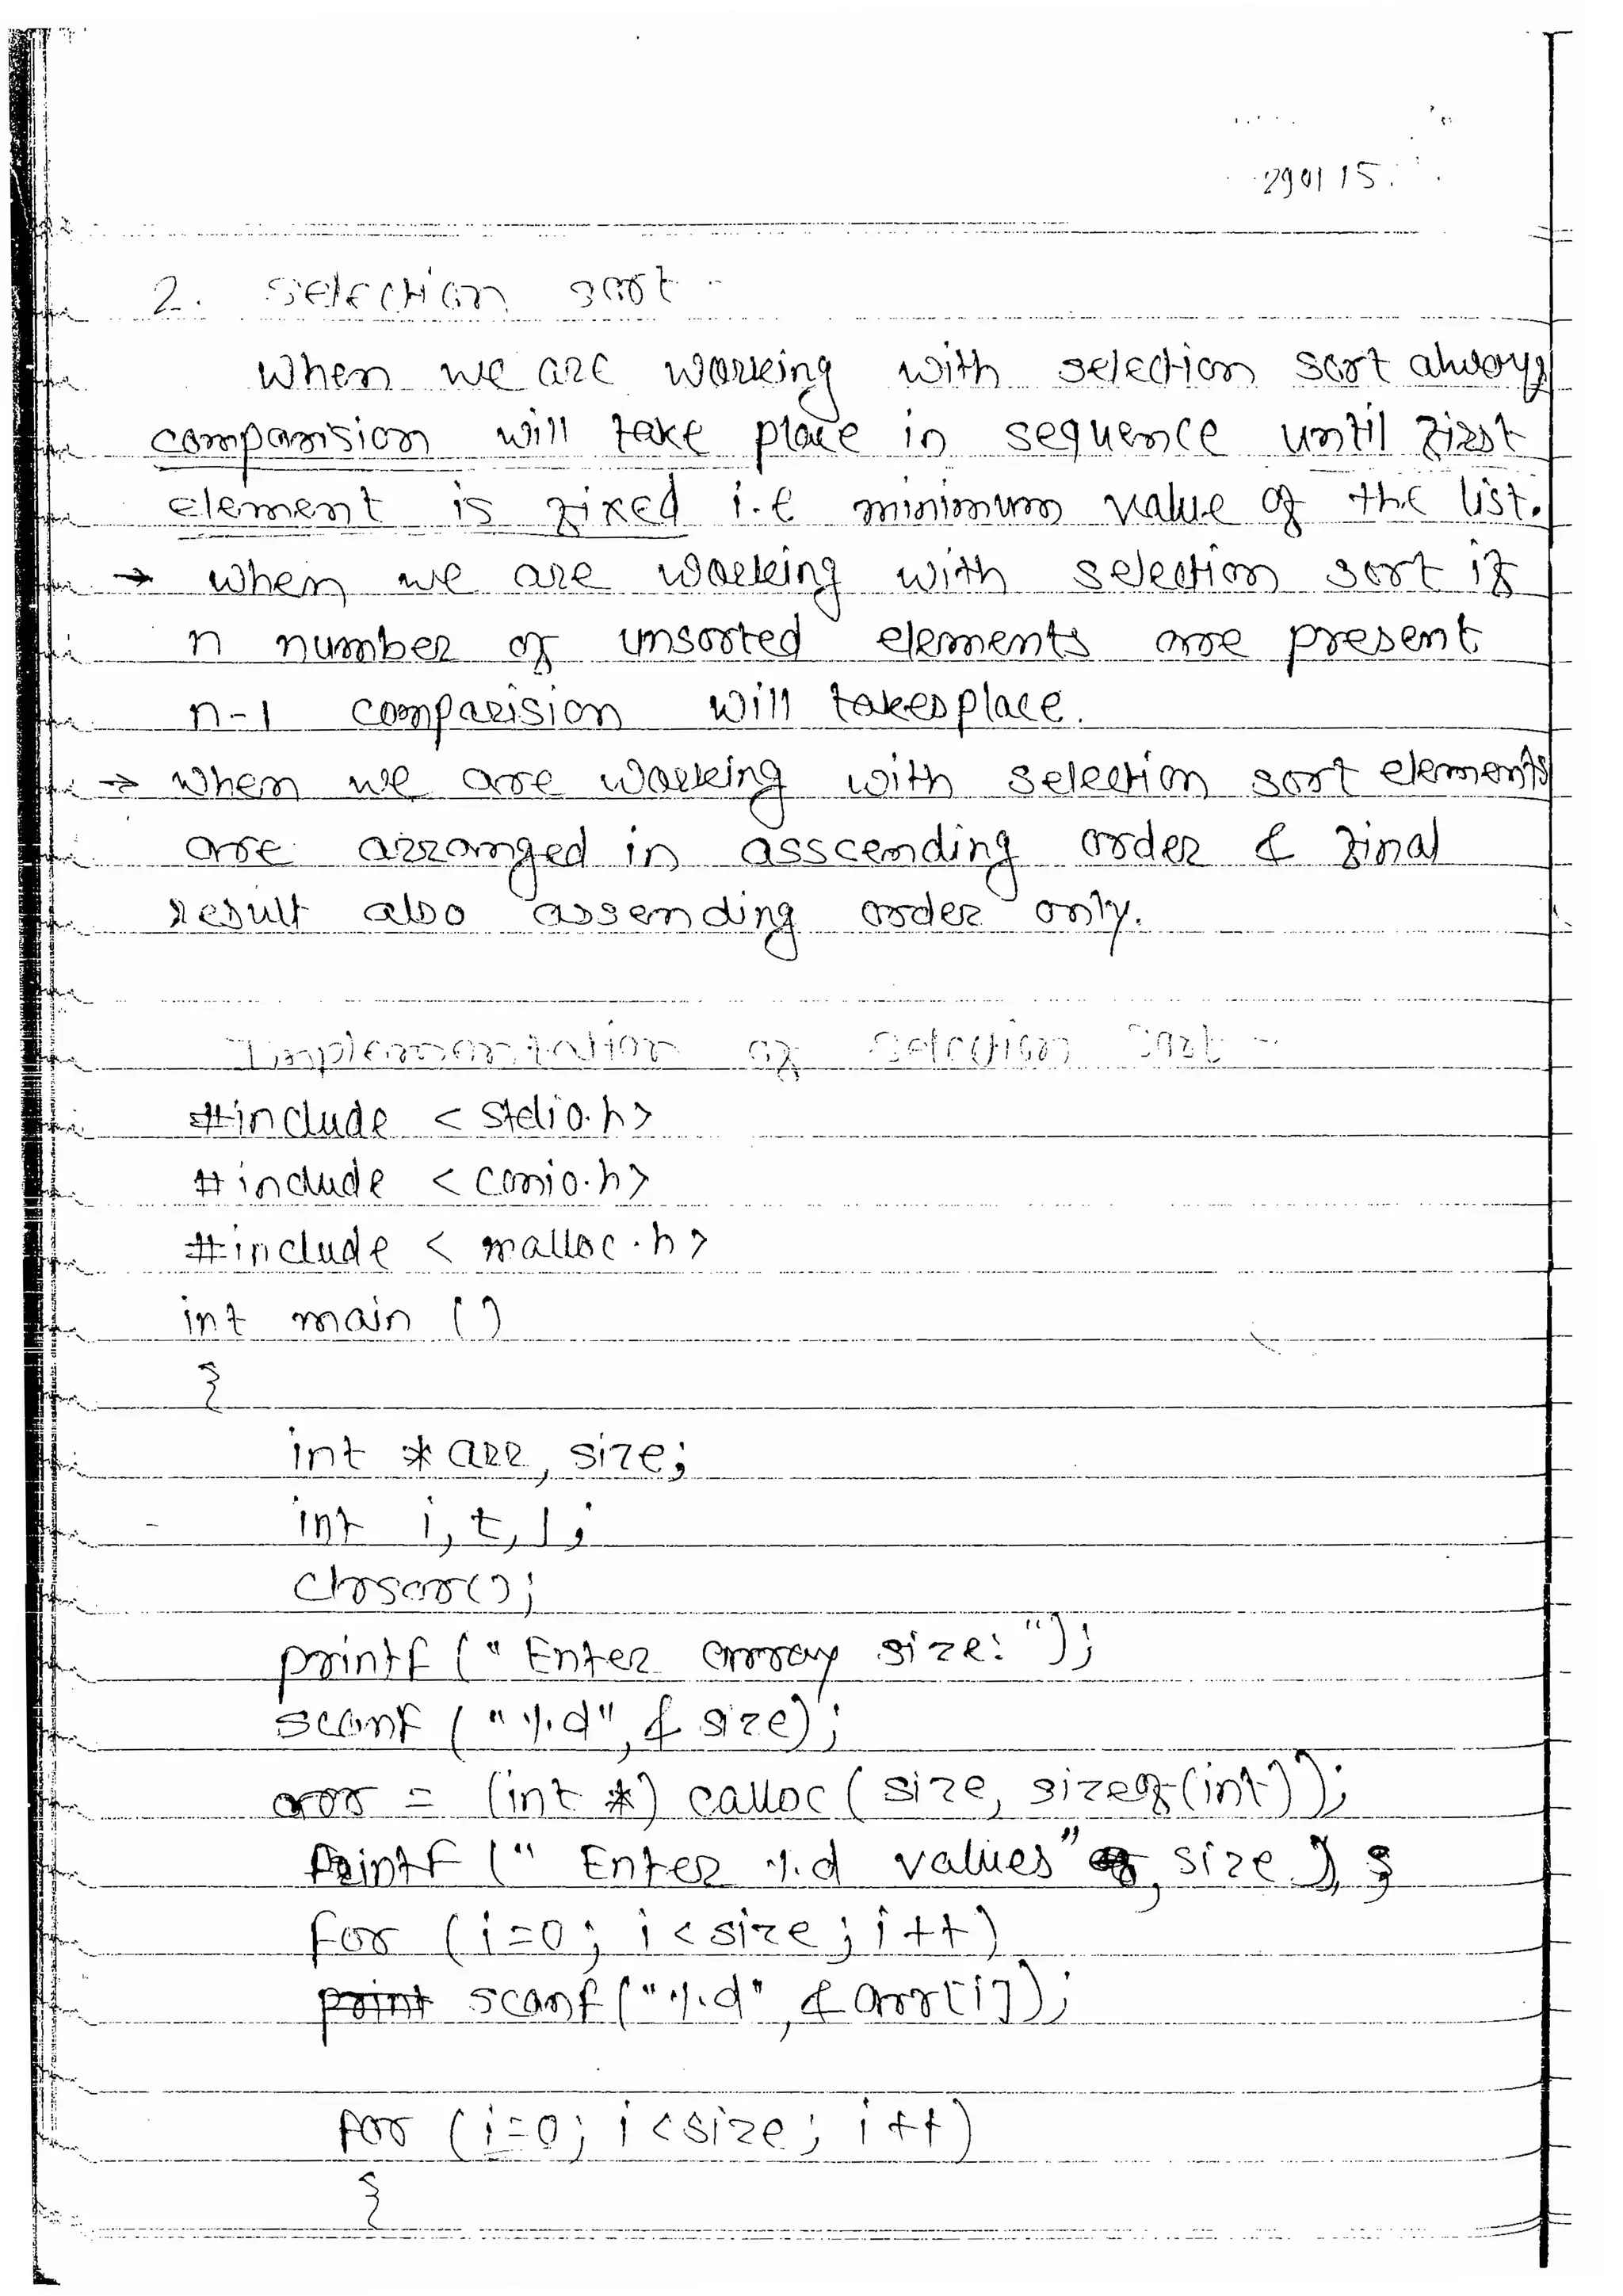 290115.
2. Selection sort -
When we are working with selection sort always
comparision will take place in sequence until first
element is fixed i.e minimum value of the list.
→ when we are working with selection sort if
n number of unsorted elements are present
n-1 comparision will takesplace.
→ when we are working with selection sort elements
are arranged in asscending order & final
result also assending order only.
Implementation of Selection Sort -
#include <stdio.h>
#include <conio.h>
#include <malloc.h>
int main ()
{
int *arr, size;
int i, t, j;
clrscr();
printf (" Enter array size: ");
scanf ("%d", & size);
arr = (int *) calloc ( size, sizeof(int));
Printf (" Enter %d values", size );
for (i=0; i<size; i++)
print scanf("%d", &arr[i]);
for (i=0; i<size; i++)
{